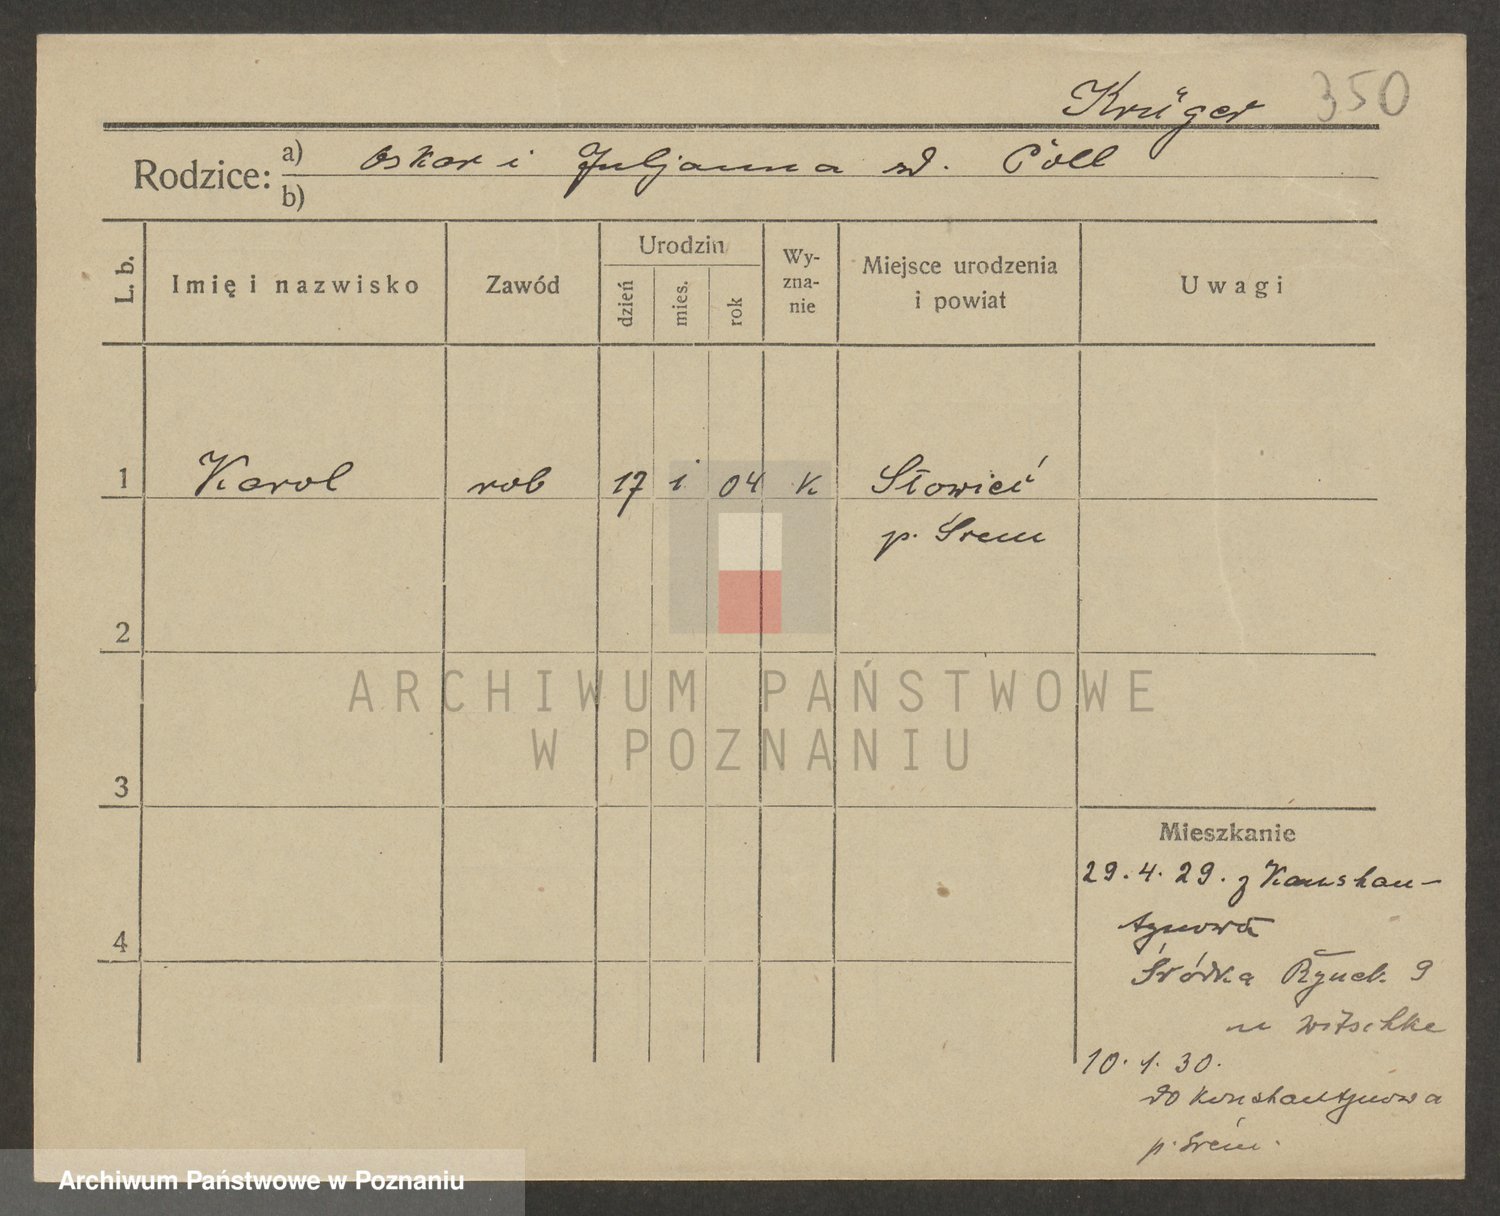 Krüger 350
Rodzice: a) Oskar i Juljanna zd. Cöll
b)
L. b. Imię i nazwisko Zawód Urodzin Wy-zna-nie Miejsce urodzenia i powiat Uwagi
dzień mies. rok
1 Karol rob 17 i 04 K Słowieć
p. Śrem
2
ARCHIWUM PAŃSTWOWE
W POZNANIU
3
Mieszkanie
29.4.29. z Konstan-
tynowa
4
Śródka Rynek 9
u Witschke
10.1.30.
do Konstantynowa
p. Śrem.
Archiwum Państwowe w Poznaniu